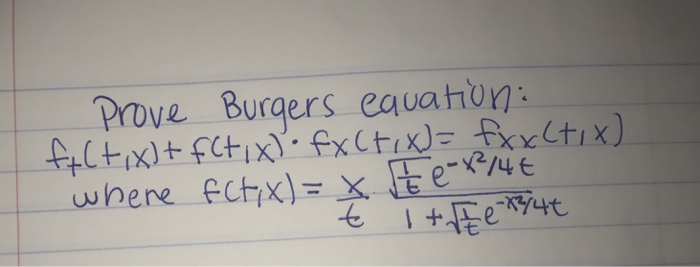 Prove Burgers equation:
f_t(t,x) + f(t,x) · f_x(t,x) = f_xx(t,x)
where f(t,x) = x/t √(1/t) e^(-x²/4t) / (1 + √(1/t) e^(-x²/4t))